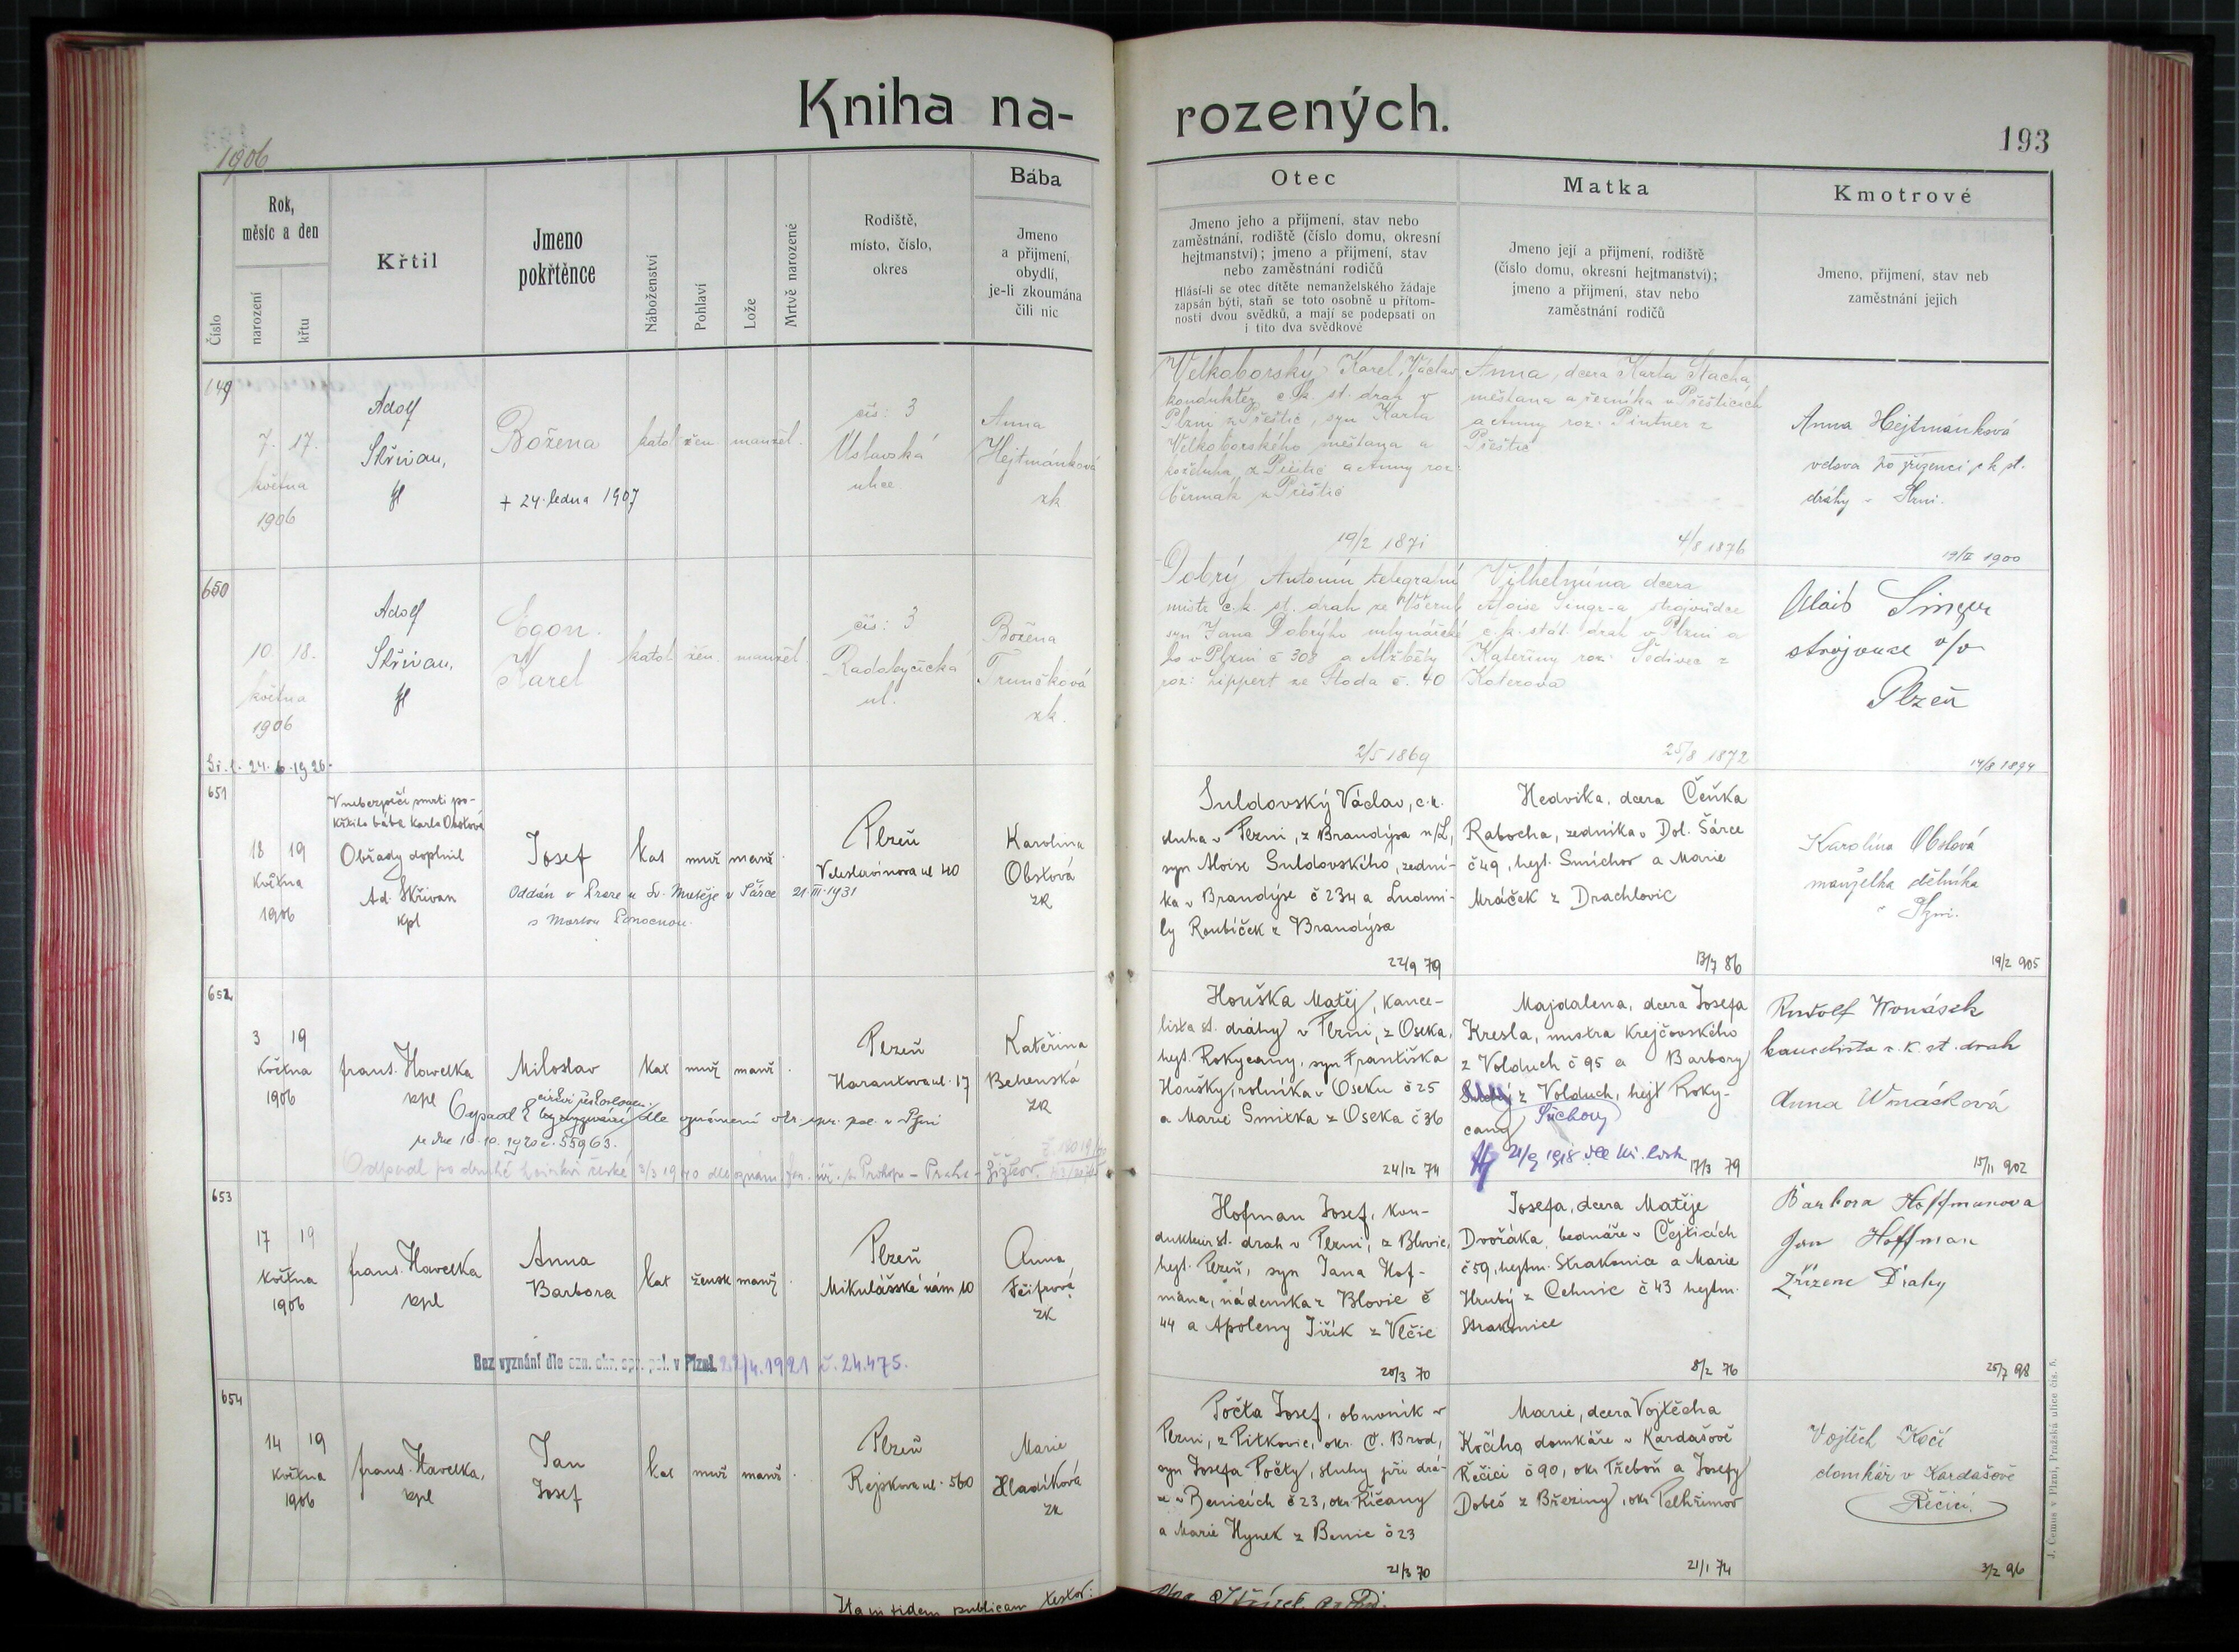 Kniha na-
rozených.
193
1906
Číslo
Rok,
měsíc a den
narození
křtu
Křtil
Jmeno
pokřtěnce
Náboženství
Pohlaví
Lože
Mrtvě narozené
Rodiště,
místo, číslo,
okres
Bába
Jmeno
a přijmení,
obydlí,
je-li zkoumána
čili nic
Otec
Jmeno jeho a přijmení, stav nebo
zaměstnání, rodiště (číslo domu, okresní
hejtmanství); jmeno a přijmení, stav
nebo zaměstnání rodičů
Hlásí-li se otec dítěte nemanželského žádaje
zapsán býti, staň se toto osobně u přítom-
nosti dvou svědků, a mají se podepsati on
i tito dva svědkové
Matka
Jmeno její a přijmení, rodiště
(číslo domu, okresní hejtmanství);
jmeno a přijmení, stav nebo
zaměstnání rodičů
Kmotrové
Jmeno, přijmení, stav neb
zaměstnání jejich
149
7. 17.
května
1906
Adolf
Skřivan,
Božena
+ 24. ledna 1907
katol žen. manžel.
čís: 3
Úslavská
ulice.
Anna
Hejtmánková
zk.
Velkoborský Karel, Václav
konduktér c. k. st. drah v
Plzni z Přeštic, syn Karla
Velkoborského měšťana a
z Přeštic a Anny roz.
Čermák z Přeštic
19/2 1871
Anna, dcera Karla Stacha,
měšťana a řezníka v Přešticích
a Anny roz. Pintner z
Přeštic
4/8 1876
Anna Hejtmánková
vdova po zřízenci c k st.
dráhy v Plzni.
19/II 1900
650
10. 18.
května
1906
Adolf
Skřivan,
Egon.
Karel
katol žen. manžel.
čís: 3
Radobyčická
ul.
Božena
Trunečková
zk.
Dobrý Antonín telegrafní
mistr c. k. st. drah ze Všerub
syn Jana Dobrýho mlynářské
ho v Plzni č 308 a Alžběty
roz: Lippert ze Stoda č. 40
2/5 1869
Vilhelmína dcera
Aloise Singr-a strojvůdce
c. k. stát. drah v Plzni a
Kateřiny roz: Šedivec z
Koterova
25/8 1872
Alois Singer
strojvuce v/v
Plzeň
14/8 1894
24. 6. 1926.
651
18 19
Května
1906
V nebezpečí smrti po-
křtila bába Karla Obstová
Obřady doplnil
Ad. Skřivan
kpl
Josef
Oddán v Praze u Sv. Matěje v Šárce 21. III. 1931
s Marlou
kat muž manž.
Plzeň
Veleslavínova ul 40
Karolina
Obstová
zk
Suldovský Václav, c. k.
sluha v Plzni, z Brandýsa n/L,
syn Aloise Suldovského, zední-
ka v Brandýse č 234 a Ludmi-
ly Roubíček z Brandýsa
22/9 79
Hedvika, dcera Čeňka
Rabocha, zedníka v Dol. Šárce
č 49, hejt. Smíchov a Marie
Mráček z Drachlovic
13/7 86
Karolína Obstová
manželka dělníka
v Plzni.
19/2 905
652
3 19
Května
1906
frant. Havelka
kpl
Miloslav
kat muž manž.
Odpadl k církvi československé dle oznámení okr. spr. pol. v Plzni
ze dne 16. 10. 1920 č. 55963.
Odpadl po druhé z církvi české 2/3 1940 dle oznám. far. úř. sv. Prokopa – Praha – Žižkov.
Plzeň
Harantova ul. 17
Kateřina
Behenská
zk
Houška Matěj, kance-
lista st. dráhy v Plzni, z Oseka,
hejt. Rokycany, syn Františka
Houšky, rolníka v Oseku č 25
a Marie Smitka z Oseka č 36
24/12 74
Majdalena, dcera Josefa
Kresla, mistra krejčovského
z Volduch č 95 a Barbory
z Volduch, hejt Roky-
cany Suchovy
21/9 1918 dle kř. listu
17/3 79
Rudolf Wonásek
kancelista c. k. st. drah
Anna Wonásková
15/11 902
653
17 19
Května
1906
frant. Havelka
kpl
Anna
Barbora
kat žensk manž.
Plzeň
Mikulášské nám 10
Anna
zk
Bez vyznání dle ozn. okr. spr. pol. v Plzni 22/4. 1921 č. 24.475.
Hofman Josef, kon-
dukteur st. drah v Plzni, z Blovic,
hejt. Plzeň, syn Jana Hof-
mana, nádeníka z Blovic č
44 a Apoleny Jiřík z Vlčic
20/3 70
Josefa, dcera Matěje
Dvořáka, bednáře v Čejticích
č 59, hejtm. Strakonice a Marie
Hrubý z Cehnic č 43 hejtm.
Strakonice
8/2 76
Barbora Hoffmanova
Jan Hoffman
Zřízenc Dráhy
25/7 98
654
14 19
Května
1906
frant. Havelka,
kpl
Jan
Josef
kat muž manž.
Plzeň
Rejskova ul. 560
Marie
Hladíková
zk
Počta Josef, obuvník v
Plzni, z Pitkovic, okr. Č. Brod,
syn Josefa Počty, sluhy při drá-
ze v Benicích č 23, okr. Říčany
a Marie Hynek z Benic č 23
21/3 70
Marie, dcera Vojtěcha
Kočího domkáře v Kardašově
Řečici č 90, okr Třeboň a Josefy
Dobeš z Březiny, okr Pelhřimov
21/1 74
Vojtěch Kočí
domkář v Kardašově
Řečici.
3/2 96
Ita in fidem publicam testor:
J. Čemus v Plzni, Pražská ulice čís. 5.